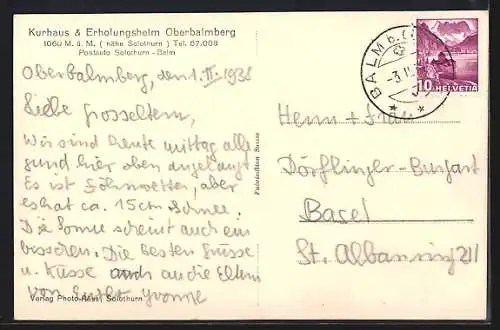 Kurhaus & Erholungsheim Oberbalmberg
1060 M. ü. M. ( nähe Solothurn ) Tel. 67.088
Postauto Solothurn - Balm
Oberbalmberg, den 1. II. 1938
Liebe Grosseltern,
Wir sind heute mittag alle
gsund hier oben angelangt
Es ist Föhnwetter, aber
es hat ca. 15cm Schnee.
Die Sonne scheint auch ein
bisschen. Die besten Grüsse
u. Küsse auch an die Eltern
von Yvonne
Verlag Photo Solothurn
BALM b.
-3. II.
10 HELVETIA
Herrn + Frau
Dörflinger-Burgart
Basel
St. Albanring 211